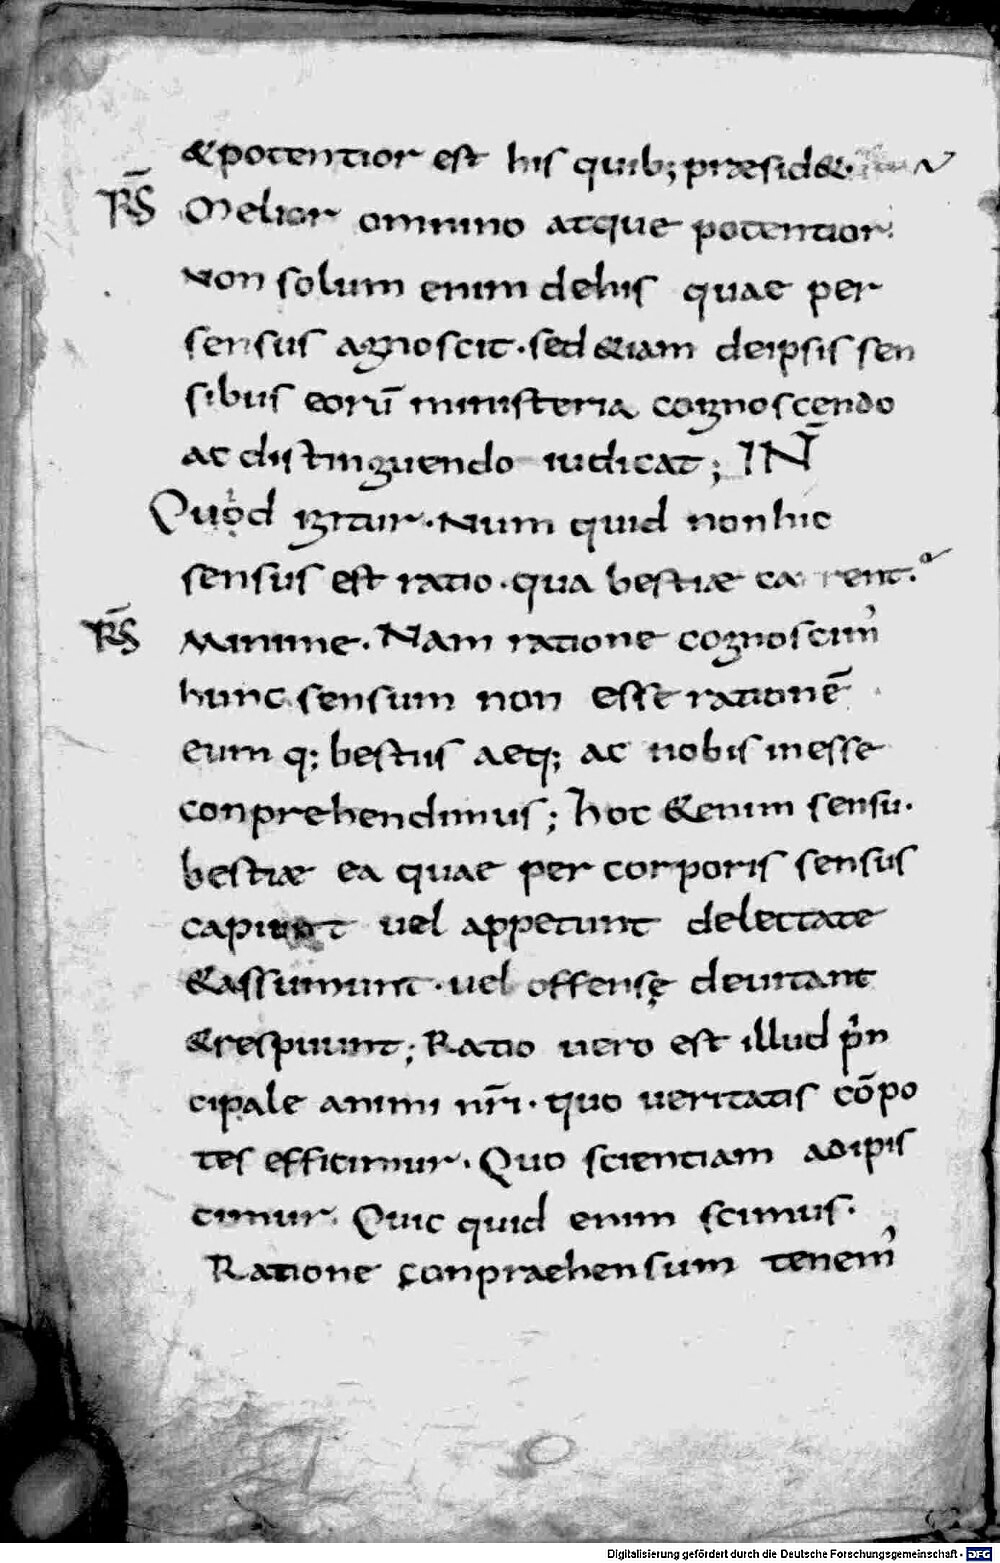 &potentior est his quib; præsid&·
R̄S Melior omnino atque potentior.
Non solum enim dehis quae per
sensus agnoscit· sed &iam deipsis sen
sibus eorū ministeria cognoscendo
ac distinguendo iudicat; IN̄
Quod igitur· Num quid non hic
sensus est ratio· qua bestiæ carent·
R̄S Minime· Nam ratione cognoscim'
hunc sensum non esse rationē
eum q; bestiis aeq; ac nobis inesse
conprehendimus; hoc &enim sensu·
bestiæ ea quae per corporis sensus
capiunt uel appetunt delectate
&assumunt· uel offensę deuitant
&respuunt; Ratio uero est illud prin
cipale animi nr̄i· quo ueritatis cōpo
tes efficimur· Quo scientiam adipis
cimur· Quic quid enim scimus·
Ratione conpraehensum tenem'
Digitalisierung gefördert durch die Deutsche Forschungsgemeinschaft · DFG